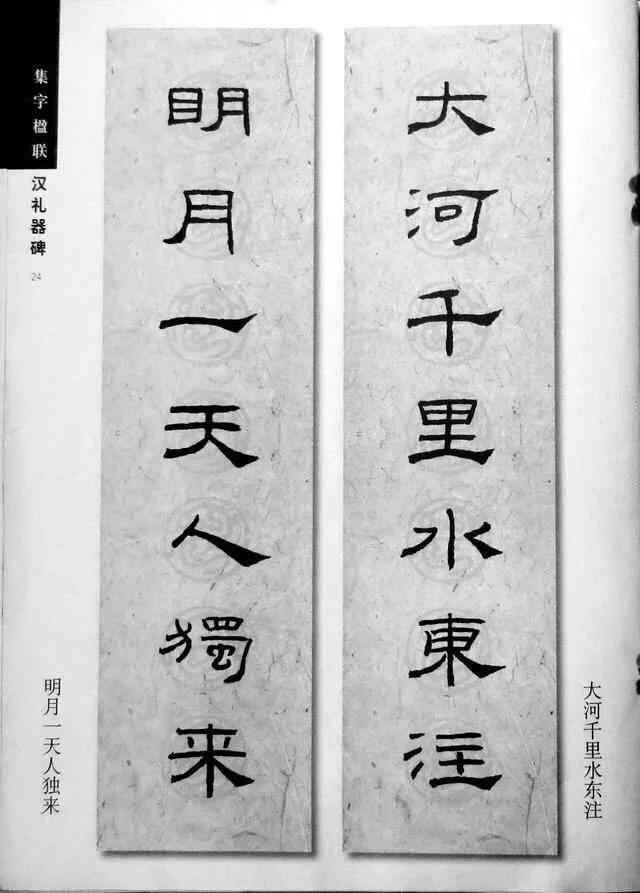 大河千里水東注
明月一天人獨来
大河千里水东注
明月一天人独来
集字楹联
汉礼器碑
24